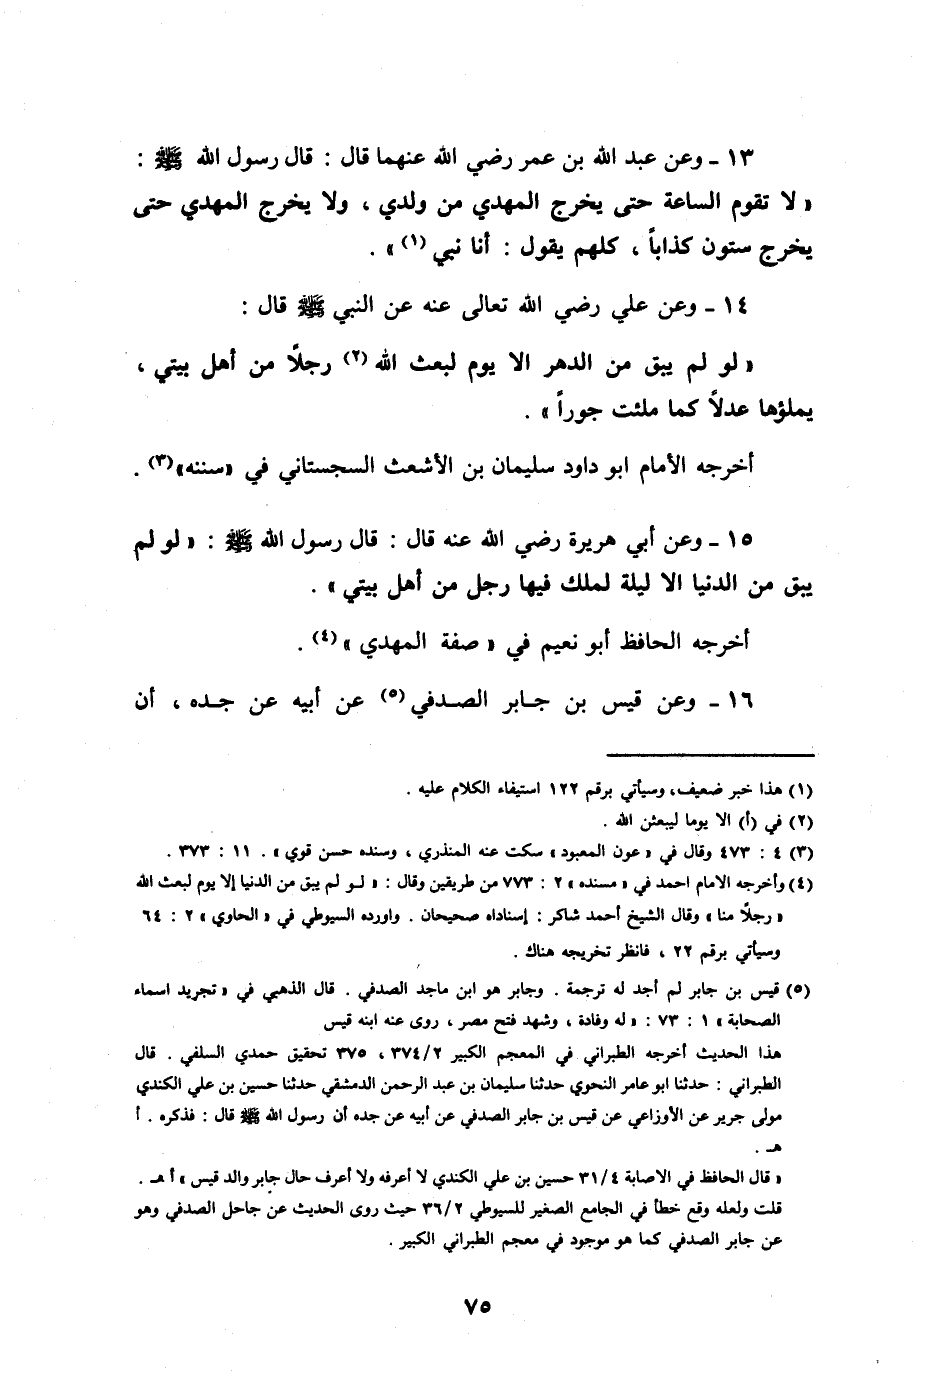 ١٣ - وعن عبد الله بن عمر رضي الله عنهما قال : قال رسول الله ﷺ :
« لا تقوم الساعة حتى يخرج المهدي من ولدي ، ولا يخرج المهدي حتى
يخرج ستون كذاباً ، كلهم يقول : أنا نبي (١) » .
١٤ - وعن علي رضي الله تعالى عنه عن النبي ﷺ قال :
« لو لم يبق من الدهر الا يوم لبعث الله (٢) رجلاً من أهل بيتي ،
يملؤها عدلاً كما ملئت جوراً » .
أخرجه الأمام ابو داود سليمان بن الأشعث السجستاني في «سننه»(٣) .
١٥ - وعن أبي هريرة رضي الله عنه قال : قال رسول الله ﷺ : « لو لم
يبق من الدنيا الا ليلة لملك فيها رجل من أهل بيتي » .
أخرجه الحافظ أبو نعيم في « صفة المهدي »(٤) .
١٦ - وعن قيس بن جـابر الصـدفي (٥) عن أبيه عن جـده ، أن
(١) هذا خبر ضعيف، وسيأتي برقم ١٢٢ استيفاء الكلام عليه .
(٢) في (أ) الا يوما ليبعثن الله .
(٣) ٤ : ٤٧٣ وقال في « عون المعبود» سكت عنه المنذري ، وسنده حسن قوي » . ١١ : ٣٧٣ .
(٤) وأخرجه الامام احمد في « مسنده » ٢ : ٧٧٣ من طريقين وقال : « لـو لم يبق من الدنيا إلا يوم لبعث الله
« رجلاً منا » وقال الشيخ أحمد شاكر : إسناداه صحيحان . واورده السيوطي في « الحاوي » ٢ : ٦٤
وسيأتي برقم ٢٢ ، فانظر تخريجه هناك .
(٥) قيس بن جابر لم أجد له ترجمة . وجابر هو ابن ماجد الصدفي . قال الذهبي في « تجريد اسماء
الصحابة » ١ : ٧٣ : « له وفادة ، وشهد فتح مصر ، روى عنه ابنه قيس
هذا الحديث أخرجه الطبراني في المعجم الكبير ٣٧٤/٢ ، ٣٧٥ تحقيق حمدي السلفي . قال
الطبراني : حدثنا ابو عامر النحوي حدثنا سليمان بن عبد الرحمن الدمشقي حدثنا حسين بن علي الكندي
مولى جرير عن الأوزاعي عن قيس بن جابر الصدفي عن أبيه عن جده أن رسول الله ﷺ قال : فذكره . أ
هـ .
« قال الحافظ في الاصابة ٣١/٤ حسين بن علي الكندي لا أعرفه ولا أعرف حال جابر والد قيس » أ هـ .
قلت ولعله وقع خطأ في الجامع الصغير للسيوطي ٣٦/٢ حيث روى الحديث عن جاحل الصدفي وهو
عن جابر الصدفي كما هو موجود في معجم الطبراني الكبير .
٧٥